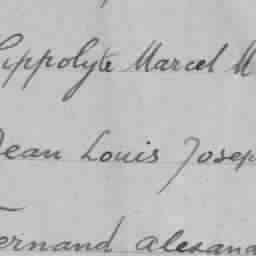 Hippolyte Marcel M
Jean Louis Josep
Fernand Alexand